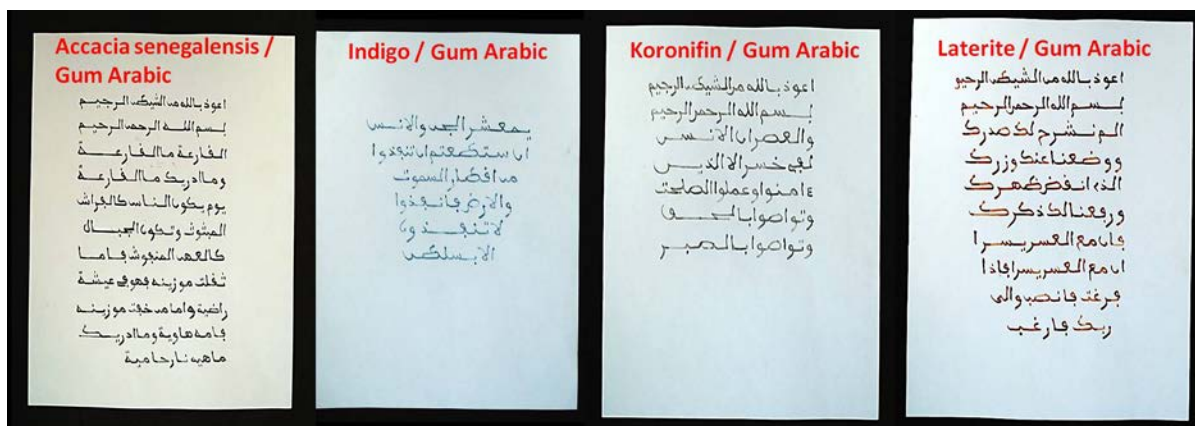 Accacia senegalensis /
Gum Arabic
اعوذ بالله من الشيطن الرجيم
بسم الله الرحمن الرحيم
الفارعة ما الفارعة
وما ادريك ما الفارعة
يوم يكون الناس كالفراش
المبثوث وتكون الجبال
كالعهن المنفوش فاما
ثفلت موزينه فهو في عيشة
راضية واما من خفت موزينه
فامه هاوية وما ادريك
ماهيه نار حامية
Indigo / Gum Arabic
يمعشر الجن والانس
ان استطعتم ان تنفذوا
من افطار السموت
والارض فانفذوا
لا تنفذون
الا بسلطن
Koronifin / Gum Arabic
اعوذ بالله من الشيطن الرجيم
بسم الله الرحمن الرحيم
والعصر ان الانسن
لفي خسر الا الذين
ءامنوا وعملوا الصلحت
وتواصوا بالحق
وتواصوا بالصبر
Laterite / Gum Arabic
اعوذ بالله من الشيطن الرجيم
بسم الله الرحمن الرحيم
الم نشرح لك صدرك
ووضعنا عنك وزرك
الذي انفض ظهرك
ورفعنا لك ذكرك
فان مع العسر يسرا
ان مع العسر يسرا فاذا
فرغت فانصب والى
ربك فارغب